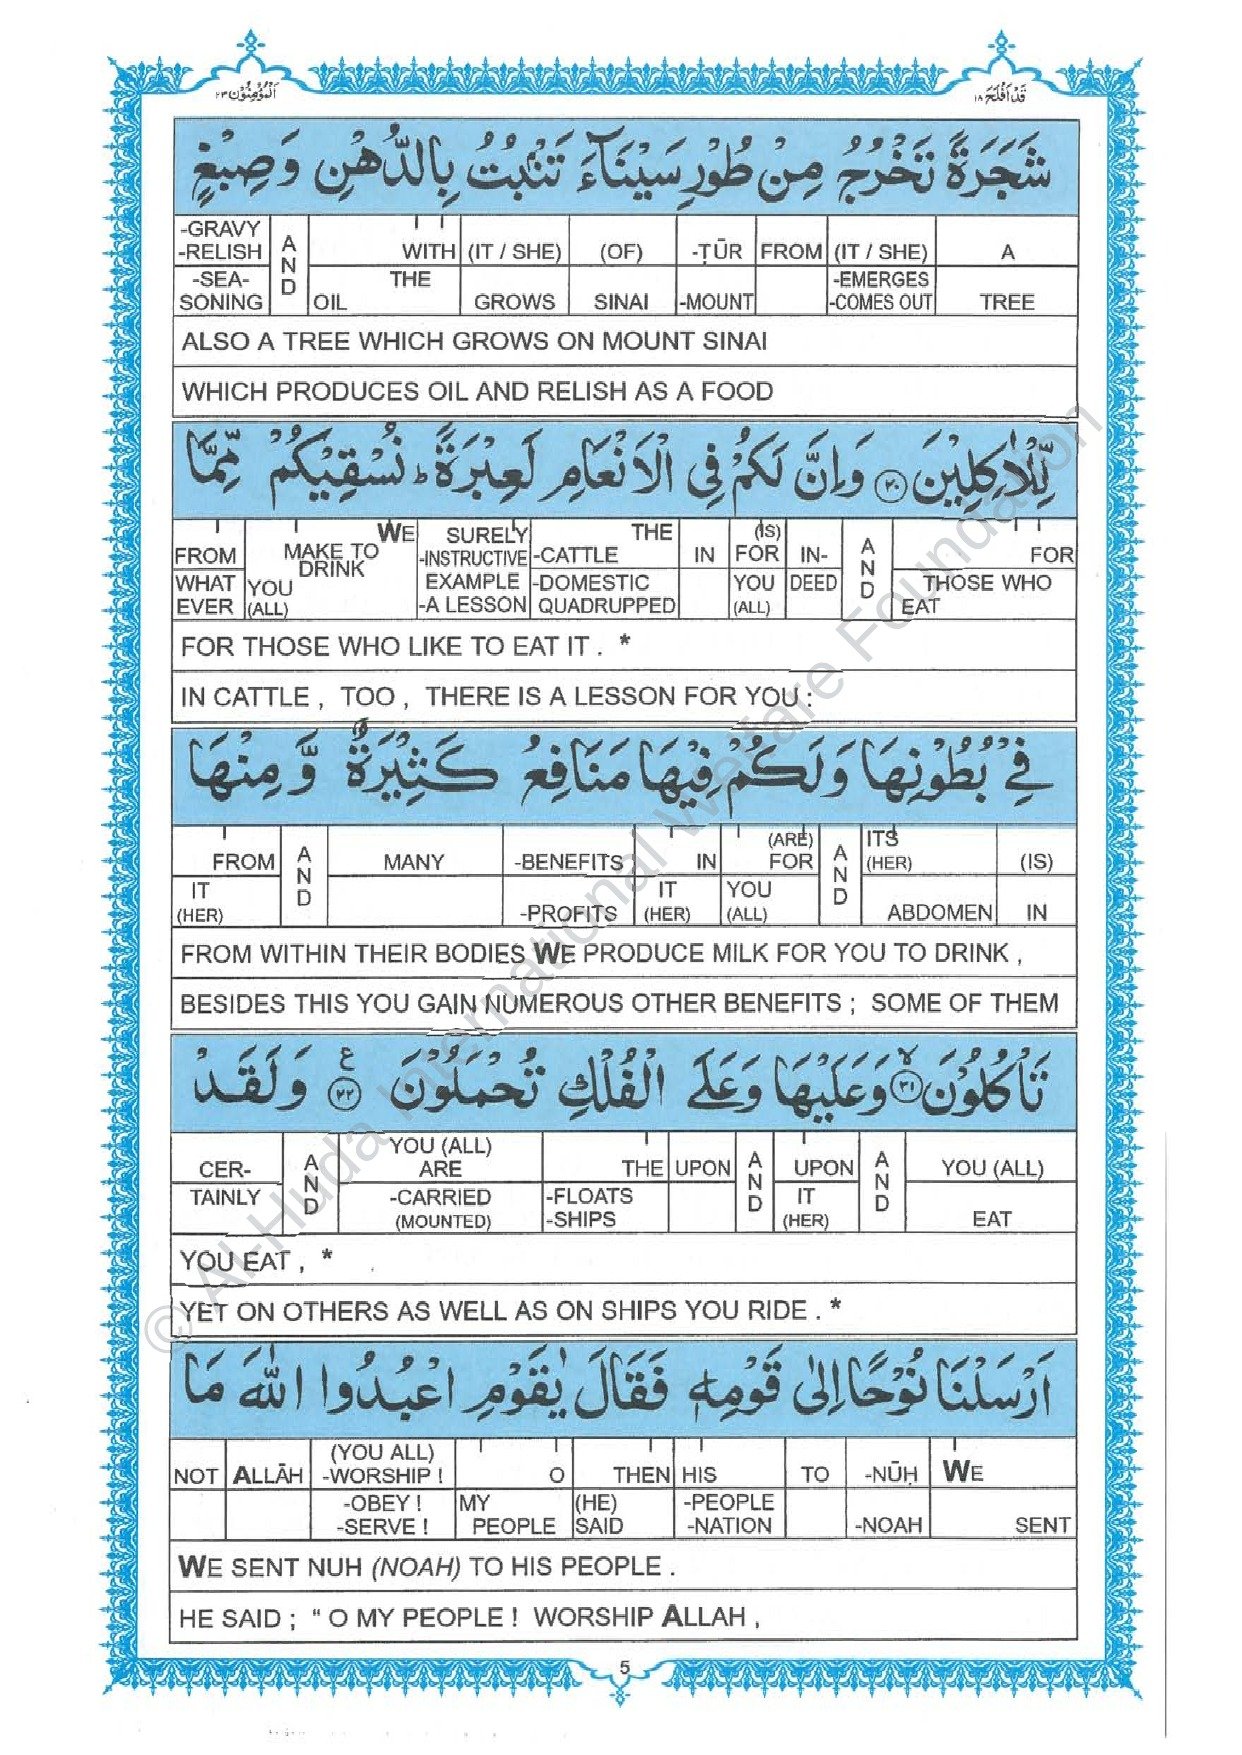 المؤمنون ٢٣
قد افلح ١٨
شَجَرَةً تَخْرُجُ مِنْ طُوْرِ سَيْنَآءَ تَنْۢبُتُ بِالدُّهْنِ وَصِبْغٍ
-GRAVY -RELISH | AND | WITH | (IT / SHE) | (OF) | -ṬŪR | FROM | (IT / SHE) | A
-SEA-SONING | OIL THE | GROWS | SINAI | -MOUNT | -EMERGES -COMES OUT | TREE
ALSO A TREE WHICH GROWS ON MOUNT SINAI
WHICH PRODUCES OIL AND RELISH AS A FOOD
لِّلْاٰكِلِيْنَ ٢٠ وَاِنَّ لَكُمْ فِي الْاَنْعَامِ لَعِبْرَةً ؕ نُسْقِيْكُمْ مِّمَّا
FROM | WE MAKE TO DRINK | SURELY -INSTRUCTIVE | THE -CATTLE | IN | (IS) FOR | IN- | AND | FOR
WHAT EVER | YOU (ALL) | EXAMPLE -A LESSON | -DOMESTIC QUADRUPPED | YOU (ALL) | DEED | THOSE WHO EAT
FOR THOSE WHO LIKE TO EAT IT . *
IN CATTLE , TOO , THERE IS A LESSON FOR YOU :
فِيْ بُطُوْنِهَا وَلَكُمْ فِيْهَا مَنَافِعُ كَثِيْرَةٌ وَّ مِنْهَا
FROM | AND | MANY | -BENEFITS | IN | (ARE) FOR | AND | ITS (HER) | (IS)
IT (HER) | -PROFITS | IT (HER) | YOU (ALL) | ABDOMEN | IN
FROM WITHIN THEIR BODIES WE PRODUCE MILK FOR YOU TO DRINK ,
BESIDES THIS YOU GAIN NUMEROUS OTHER BENEFITS ; SOME OF THEM
تَاْكُلُوْنَ ٢١ ۙ وَعَلَيْهَا وَعَلَى الْفُلْكِ تُحْمَلُوْنَ ٢٢ ع وَلَقَدْ
CER- | AND | YOU (ALL) ARE | THE | UPON | AND | UPON | AND | YOU (ALL)
TAINLY | -CARRIED (MOUNTED) | -FLOATS -SHIPS | IT (HER) | EAT
YOU EAT , *
YET ON OTHERS AS WELL AS ON SHIPS YOU RIDE . *
اَرْسَلْنَا نُوْحًا اِلٰى قَوْمِهٖ فَقَالَ يٰقَوْمِ اعْبُدُوا اللّٰهَ مَا
NOT | ALLĀH | (YOU ALL) -WORSHIP ! | O | THEN | HIS | TO | -NŪḤ | WE
-OBEY ! -SERVE ! | MY PEOPLE | (HE) SAID | -PEOPLE -NATION | -NOAH | SENT
WE SENT NUH (NOAH) TO HIS PEOPLE .
HE SAID ; “ O MY PEOPLE ! WORSHIP ALLAH ,
5
© Al-Huda International Welfare Foundation